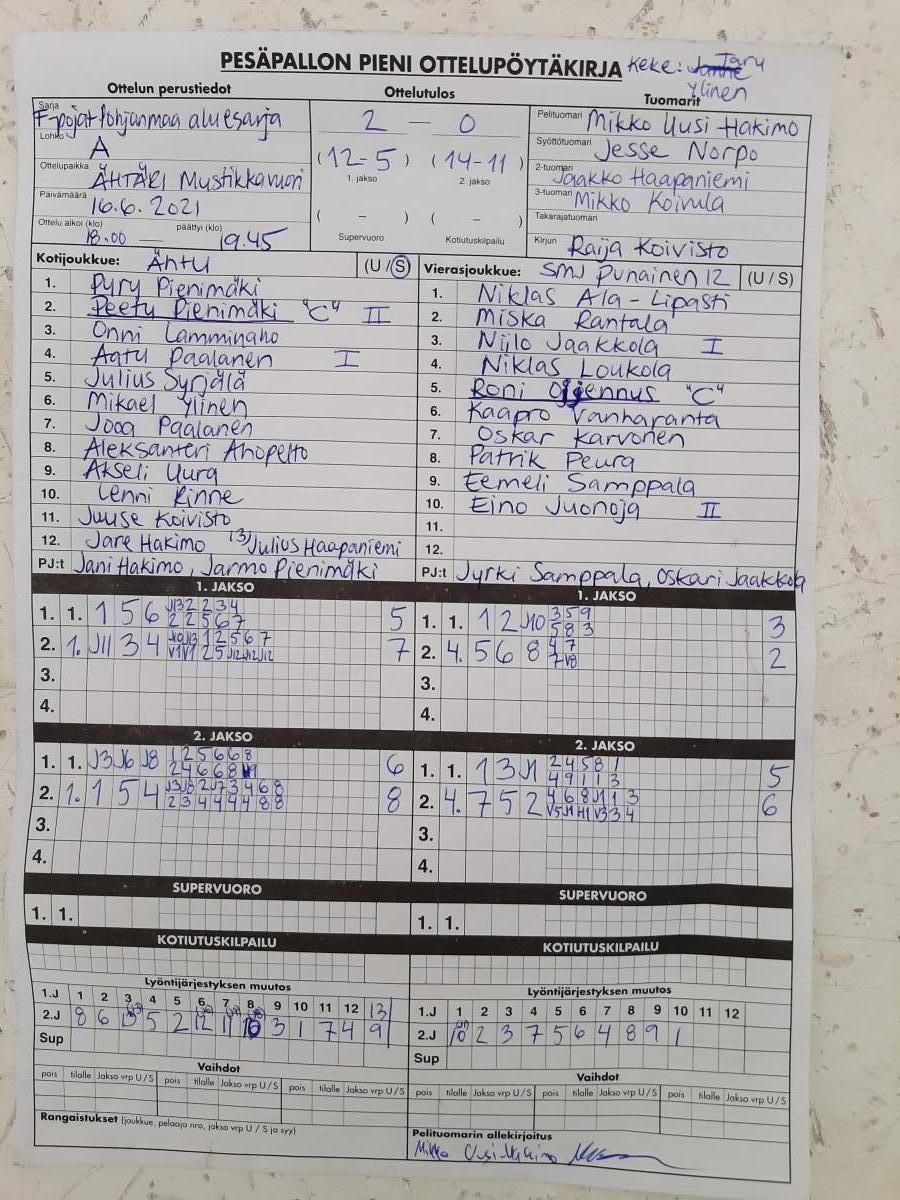 PESÄPALLON PIENI OTTELUPÖYTÄKIRJA Keke: Taru
Ylinen
Ottelun perustiedot Ottelutulos Tuomarit
Sarja F-pojat Pohjanmaa aluesarja
Lohko A
Ottelupaikka ÄHTÄRI Mustikkavuori
Päivämäärä 16.6.2021
Ottelu alkoi (klo) 18.00 — päättyi (klo) 19.45
2 — 0
(12-5) (14-11)
1. jakso 2. jakso
( - ) ( - )
Supervuoro Kotiutuskilpailu
Pelituomari Mikko Uusi Hakimo
Syöttötuomari Jesse Norpo
2-tuomari Jaakko Haapaniemi
3-tuomari Mikko Koivula
Takarajatuomari
Kirjuri Raija Koivisto
Kotijoukkue: ÄhtU (U / S)
1. Pyry Pienimäki
2. Peetu Pienimäki "C" II
3. Onni Lamminaho
4. Aatu Paalanen I
5. Julius Syrjälä
6. Mikael Ylinen
7. Jooa Paalanen
8. Aleksanteri Ahopelto
9. Akseli Uura
10. Lenni Rinne
11. Juuse Koivisto
12. Jare Hakimo 13) Julius Haapaniemi
PJ:t Jani Hakimo, Jarmo Pienimäki
Vierasjoukkue: SMJ Punainen 12 (U / S)
1. Niklas Ala-Lipasti
2. Miska Rantala
3. Niilo Jaakkola I
4. Niklas Loukola
5. Roni Ojennus "C"
6. Kaapro Vanharanta
7. Oskar Karvonen
8. Patrik Peura
9. Eemeli Samppala
10. Eino Juonoja II
11.
12.
PJ:t Jyrki Samppala, Oskari Jaakkola
1. JAKSO
1. 1. 1 5 6 J13 2 2 3 4 5
2 2 5 6 7
2. 1. J11 3 4 J10 J13 1 2 5 6 7 7
V1 V1 2 5 J12 J12 J12
3.
4.
1. JAKSO
1. 1. 1 2 J10 3 5 9 3
5 8 3
2. 4. 5 6 8 4 7 2
7 V8
3.
4.
2. JAKSO
1. 1. J3 J6 J8 1 2 5 6 6 8 6
2 4 6 6 8
2. 1. 1 5 4 J3 J8 2 J7 3 4 6 8 8
2 3 4 4 4 4 8 8
3.
4.
2. JAKSO
1. 1. 1 3 J1 2 4 5 8 1 5
4 9 1 1 3
2. 4. 7 5 2 4 6 8 J1 1 3 6
V5 J1 H1 V3 3 4
3.
4.
SUPERVUORO
1. 1.
SUPERVUORO
1. 1.
KOTIUTUSKILPAILU
KOTIUTUSKILPAILU
Lyöntijärjestyksen muutos
1.J 1 2 3 4 5 6 7 8 9 10 11 12 13
2.J 8 6 13 5 2 12 11 10 3 1 7 4 9
Sup
Lyöntijärjestyksen muutos
1.J 1 2 3 4 5 6 7 8 9 10 11 12
2.J 10 2 3 7 5 6 4 8 9 1
Sup
Vaihdot
pois tilalle Jakso vrp U / S pois tilalle Jakso vrp U / S pois tilalle Jakso vrp U / S
Vaihdot
pois tilalle Jakso vrp U / S pois tilalle Jakso vrp U / S pois tilalle Jakso vrp U / S
Rangaistukset (joukkue, pelaaja nro, jakso vrp U / S ja syy)
Pelituomarin allekirjoitus
Mikko Uusi-Hakimo